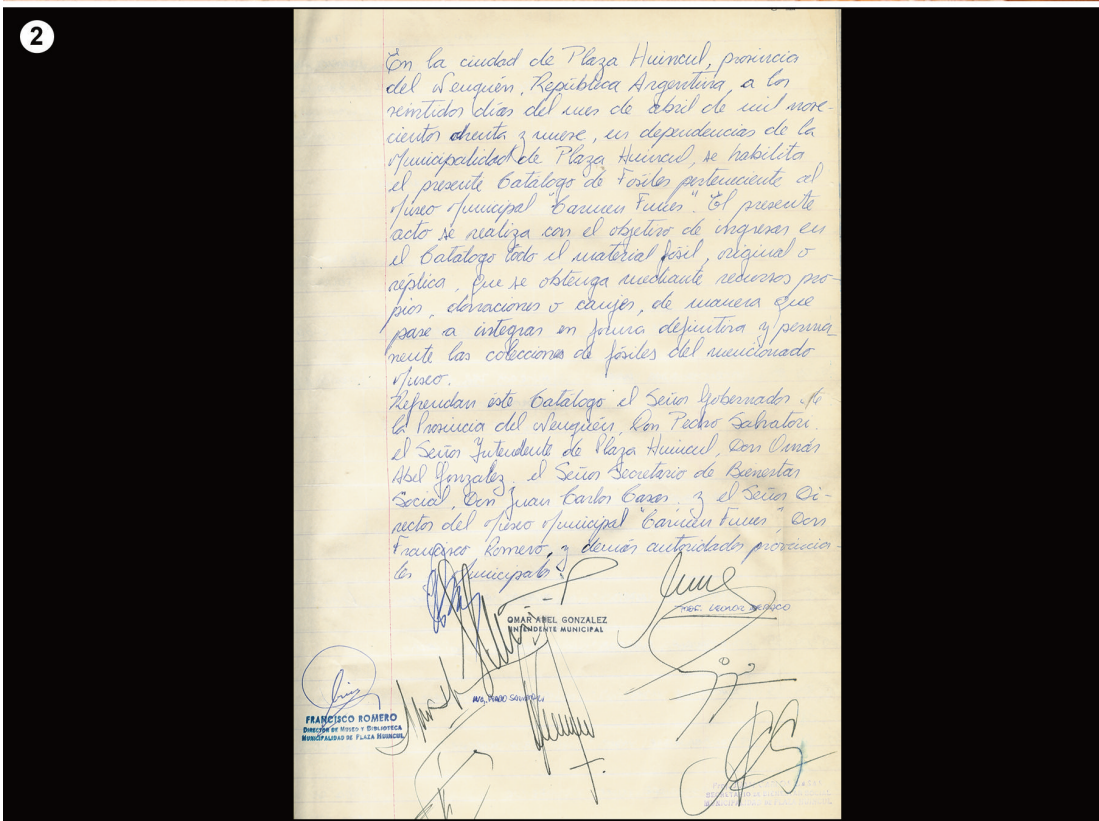 2
En la ciudad de Plaza Huincul, provincia
del Neuquén, República Argentina, a los
veintidos días del mes de abril de mil nove-
cientos ochenta y nueve, en dependencias de la
Municipalidad de Plaza Huincul, se habilita
el presente Catálogo de Fósiles perteneciente al
Museo Municipal "Carmen Funes". El presente
acto se realiza con el objetivo de ingresar en
el Catálogo todo el material fósil, original o
réplica, que se obtenga mediante recursos pro-
pios, donaciones o canjes, de manera que
pase a integrar en forma definitiva y perma-
nente las colecciones de fósiles del mencionado
Museo.
Refrendan éste Catálogo el Señor Gobernador de
la Provincia del Neuquén, Don Pedro Salvatori,
el Señor Intendente de Plaza Huincul, Don Omar
Abel Gonzalez, el Señor Secretario de Bienestar
Social, Don Juan Carlos Casas, y el Señor Di-
rector del Museo Municipal "Carmen Funes", Don
Francisco Romero, y demás autoridades provincia-
les Municipales.
OMAR ABEL GONZALEZ
INTENDENTE MUNICIPAL
ING. PEDRO SALVATORI
FRANCISCO ROMERO
DIRECTOR DE MUSEO Y BIBLIOTECA
MUNICIPALIDAD DE PLAZA HUINCUL